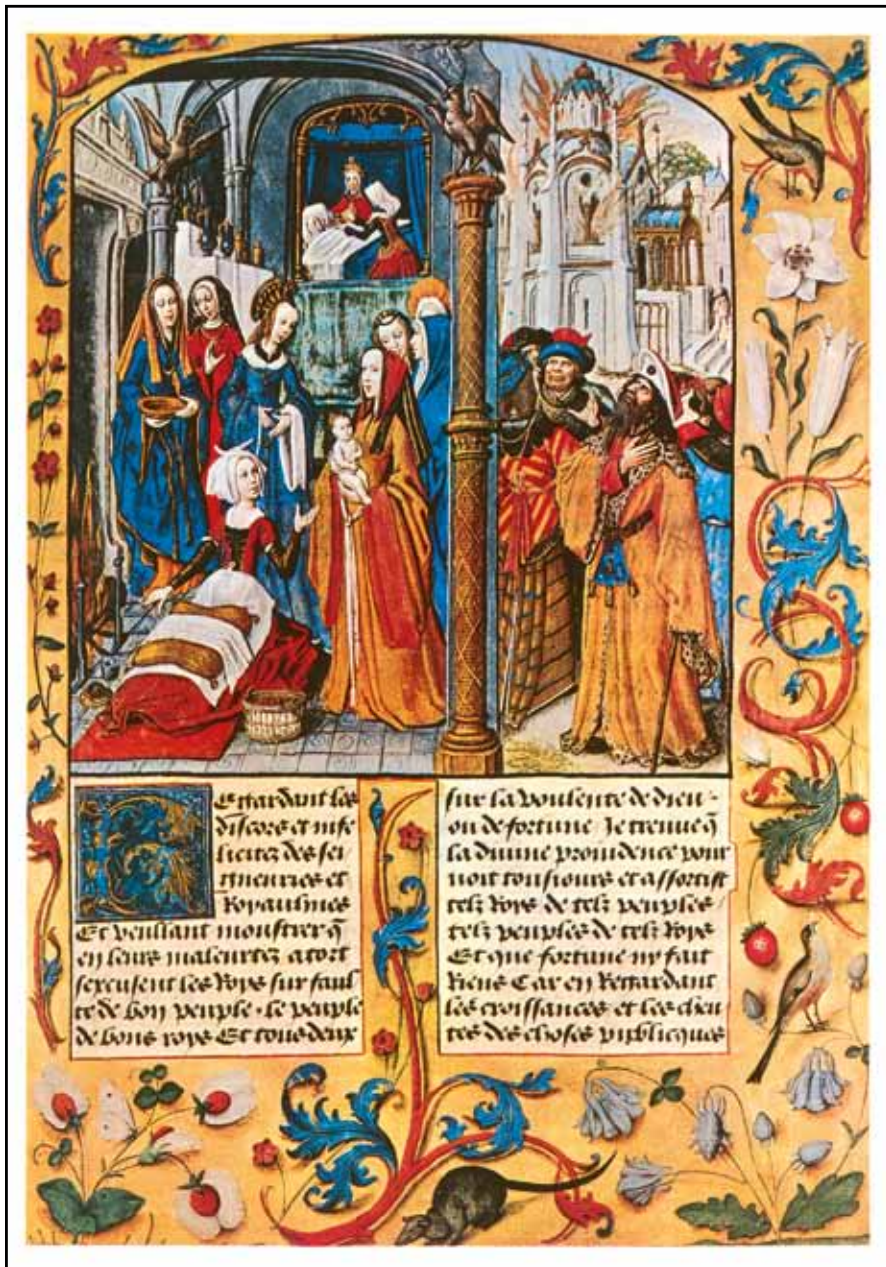 Regardant les
discors et infe
licitez des sei
gneuries et
Royaulmes
Et veullant monstrer q̃
en leurs maleurtez a tort
sexcusent les Roys sur faul
te de bon peuple. le peuple
de bons roys Et tous deux
sur la voulente de dieu
ou de fortune Je treuue q̃
la diuine prouidence pour
uoit tousiours et assortist
telz Roys de telz peuples
telz peuples de telz Roys
Et que fortune ny fait
Riens Car en Regardant
les croissances et les cheu
tes des choses publicques